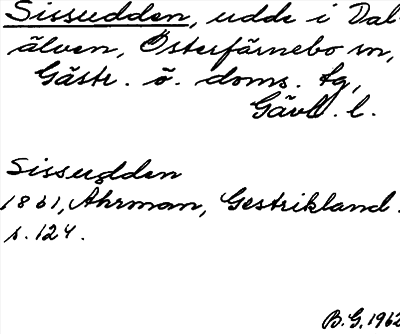 Sissudden, udde i Dal-
älven, Österfärnebo sn,
Gästr. ö. doms. tg,
Gävl. l.
Sissudden
1861, Ahrman, Gestrikland.
s. 124.
B.G. 1962